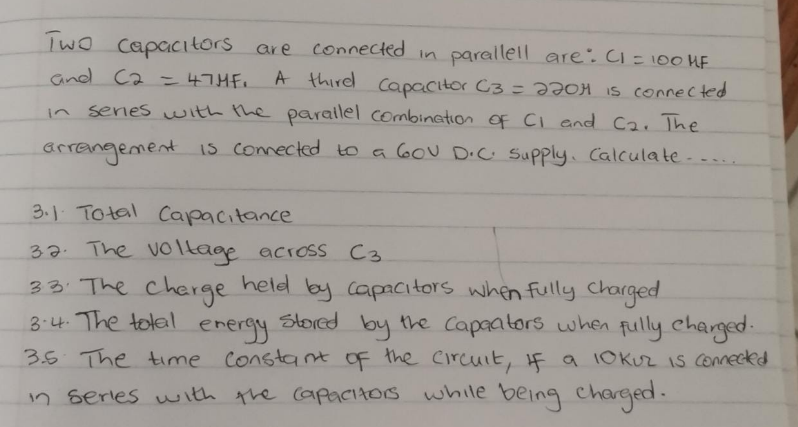 Two capacitors are connected in parallell are: C1 = 100 MF
and C2 = 47MF. A third capacitor C3 = 220M is connected
in series with the parallel combination of C1 and C2. The
arrangement is connected to a 60V D.C. supply. Calculate.....
3.1. Total Capacitance
3.2. The voltage across C3
3.3. The charge held by capacitors when fully charged
3.4. The total energy stored by the capacitors when fully charged.
3.5. The time constant of the circuit, if a 10KΩ is connected
in series with the capacitors while being charged.